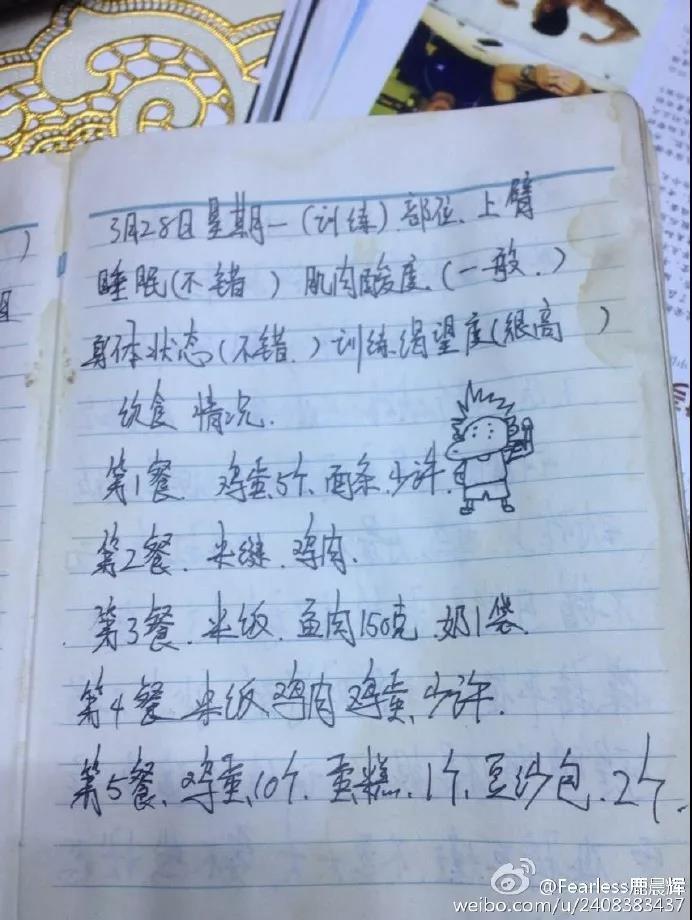 3月28日星期一(训练).部位.上臂
睡眠(不错 ) 肌肉酸度.(一般.)
身体状态(不错.)训练渴望度(很高 )
饮食 情况.
第1餐. 鸡蛋5个.面条.少许.
第2餐.米 . 鸡肉.
第3餐.米饭.鱼肉150克 奶1袋.
第4餐 米饭.鸡肉 鸡蛋.少许.
第5餐.鸡蛋.10个.蛋糕.1个.豆沙包.2个.
@Fearless鹿晨辉
weibo.com/u/2408383437